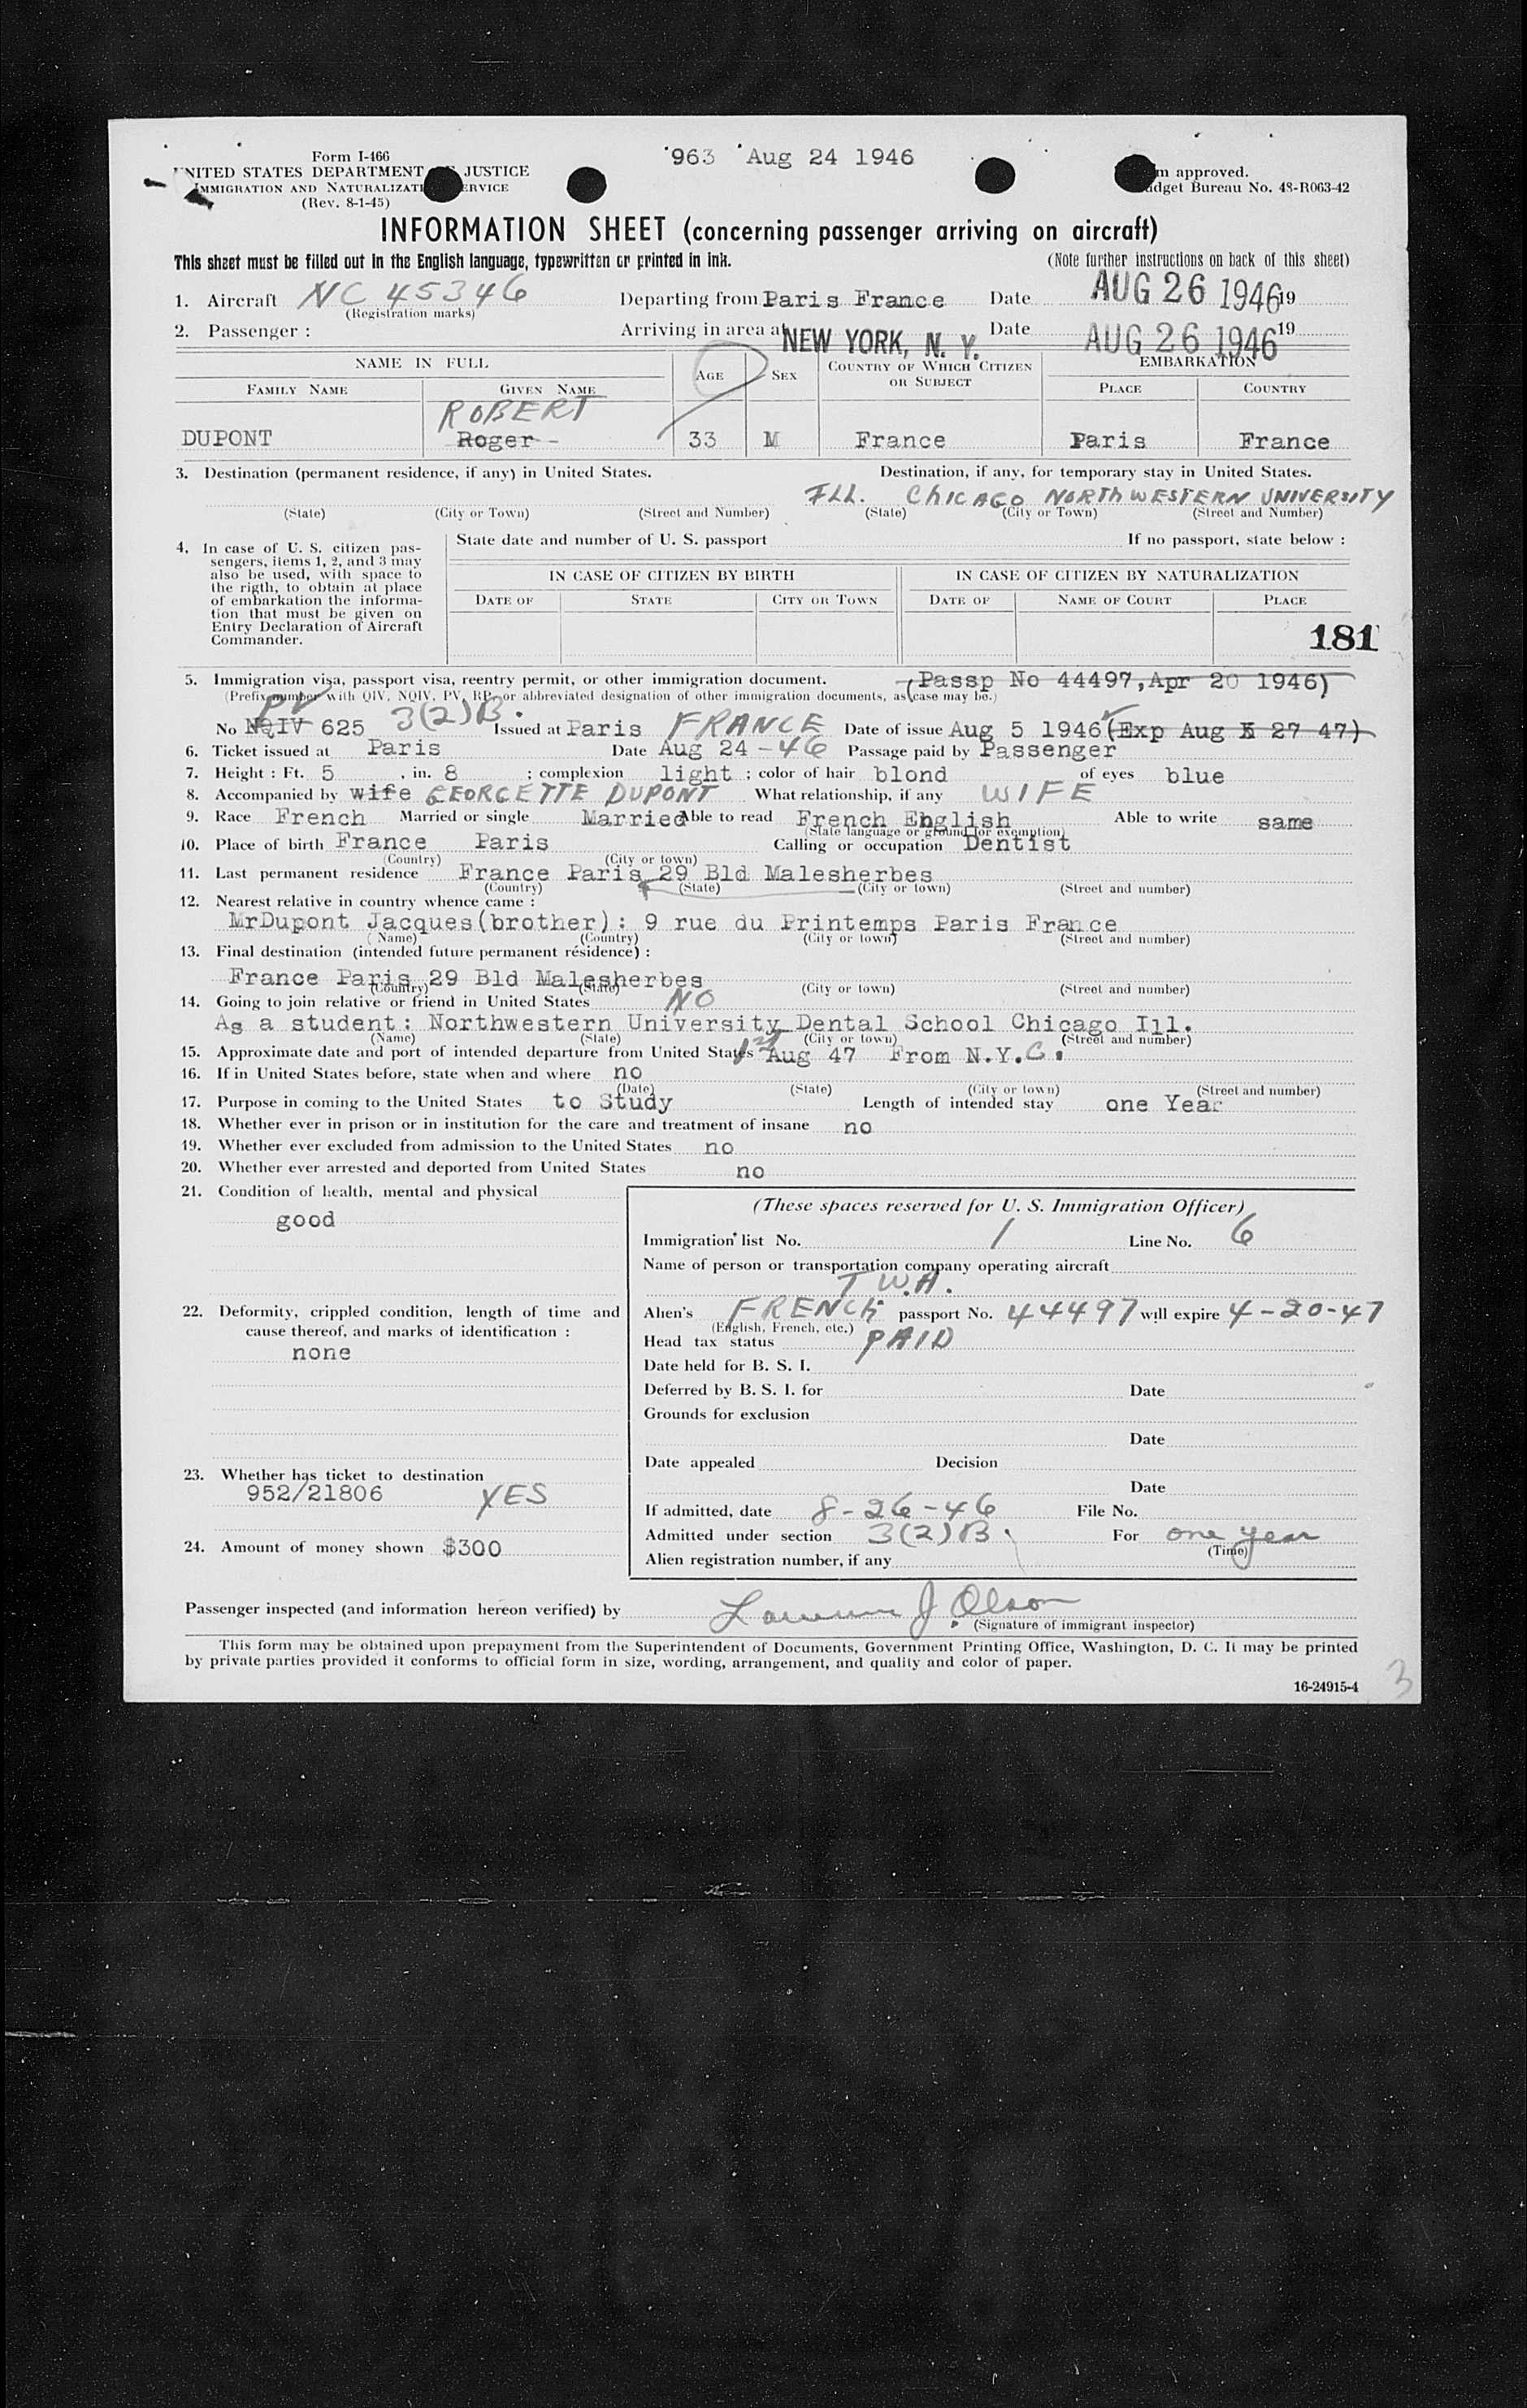 963 Aug 24 1946
Form I-466
UNITED STATES DEPARTMENT JUSTICE
IMMIGRATION AND
(Rev. 8-1-45)
approved.
Bureau No. 43-R063-42
INFORMATION SHEET (concerning passenger arriving on aircraft)
This sheet must be filled out in the English language, typewritten or printed in ink. (Note further instructions on back of this sheet)
1. Aircraft NC 45346 Departing from Paris France Date AUG 26 1946 19
(Registration marks)
2. Passenger : Arriving in area at NEW YORK, N. Y. Date AUG 26 1946 19
NAME IN FULL AGE SEX COUNTRY OF WHICH CITIZEN OR SUBJECT EMBARKATION
FAMILY NAME GIVEN NAME PLACE COUNTRY
ROBERT
DUPONT Roger 33 M France Paris France
3. Destination (permanent residence, if any) in United States. Destination, if any, for temporary stay in United States.
ILL. CHICAGO NORTHWESTERN UNIVERSITY
(State) (City or Town) (Street and Number) (State) (City or Town) (Street and Number)
4. In case of U. S. citizen pas-
sengers, items 1, 2, and 3 may
also be used, with space to
the rigth, to obtain at place
of embarkation the informa-
tion that must be given on
Entry Declaration of Aircraft
Commander.
State date and number of U. S. passport If no passport, state below :
IN CASE OF CITIZEN BY BIRTH IN CASE OF CITIZEN BY NATURALIZATION
DATE OF STATE CITY OR TOWN DATE OF NAME OF COURT PLACE
181
5. Immigration visa, passport visa, reentry permit, or other immigration document. (Passp No 44497,Apr 20 1946)
(Prefix number with QIV, NQIV, PV, RP, or abbreviated designation of other immigration documents, as case may be.)
PV 3(2)B.
No NQIV 625 Issued at Paris FRANCE Date of issue Aug 5 1946 (Exp Aug 27 47)
6. Ticket issued at Paris Date Aug 24 -46 Passage paid by Passenger
7. Height : Ft. 5 , in. 8 ; complexion light ; color of hair blond of eyes blue
8. Accompanied by wife GEORGETTE DUPONT What relationship, if any WIFE
9. Race French Married or single Married Able to read French English Able to write same
(State language or ground for exemption)
10. Place of birth France Paris Calling or occupation Dentist
(Country) (City or town)
11. Last permanent residence France Paris 29 Bld Malesherbes
(Country) (State) (City or town) (Street and number)
12. Nearest relative in country whence came :
MrDupont Jacques(brother): 9 rue du Printemps Paris France
(Name) (Country) (City or town) (Street and number)
13. Final destination (intended future permanent résidence) :
France Paris 29 Bld Malesherbes
(Country) (State) (City or town) (Street and number)
14. Going to join relative or friend in United States NO
As a student: Northwestern University Dental School Chicago Ill.
(Name) (State) (City or town) (Street and number)
15. Approximate date and port of intended departure from United States 1st Aug 47 From N.Y.C.
16. If in United States before, state when and where no
(Date) (State) (City or town) (Street and number)
17. Purpose in coming to the United States to Study Length of intended stay one Year
18. Whether ever in prison or in institution for the care and treatment of insane no
19. Whether ever excluded from admission to the United States no
20. Whether ever arrested and deported from United States no
21. Condition of health, mental and physical
good
22. Deformity, crippled condition, length of time and
cause thereof, and marks of identification :
none
23. Whether has ticket to destination
952/21806 YES
24. Amount of money shown $300
(These spaces reserved for U. S. Immigration Officer)
Immigration list No. 1 Line No. 6
Name of person or transportation company operating aircraft
T.W.A.
Alien's FRENCH passport No. 44497 will expire 4-20-47
(English, French, etc.)
Head tax status PAID
Date held for B. S. I.
Deferred by B. S. I. for Date
Grounds for exclusion
Date
Date appealed Decision
Date
If admitted, date 8-26-46 File No.
Admitted under section 3(2)B. For one year
(Time)
Alien registration number, if any
Passenger inspected (and information hereon verified) by J Olson
(Signature of immigrant inspector)
This form may be obtained upon prepayment from the Superintendent of Documents, Government Printing Office, Washington, D. C. It may be printed
by private parties provided it conforms to official form in size, wording, arrangement, and quality and color of paper.
16-24915-4
3